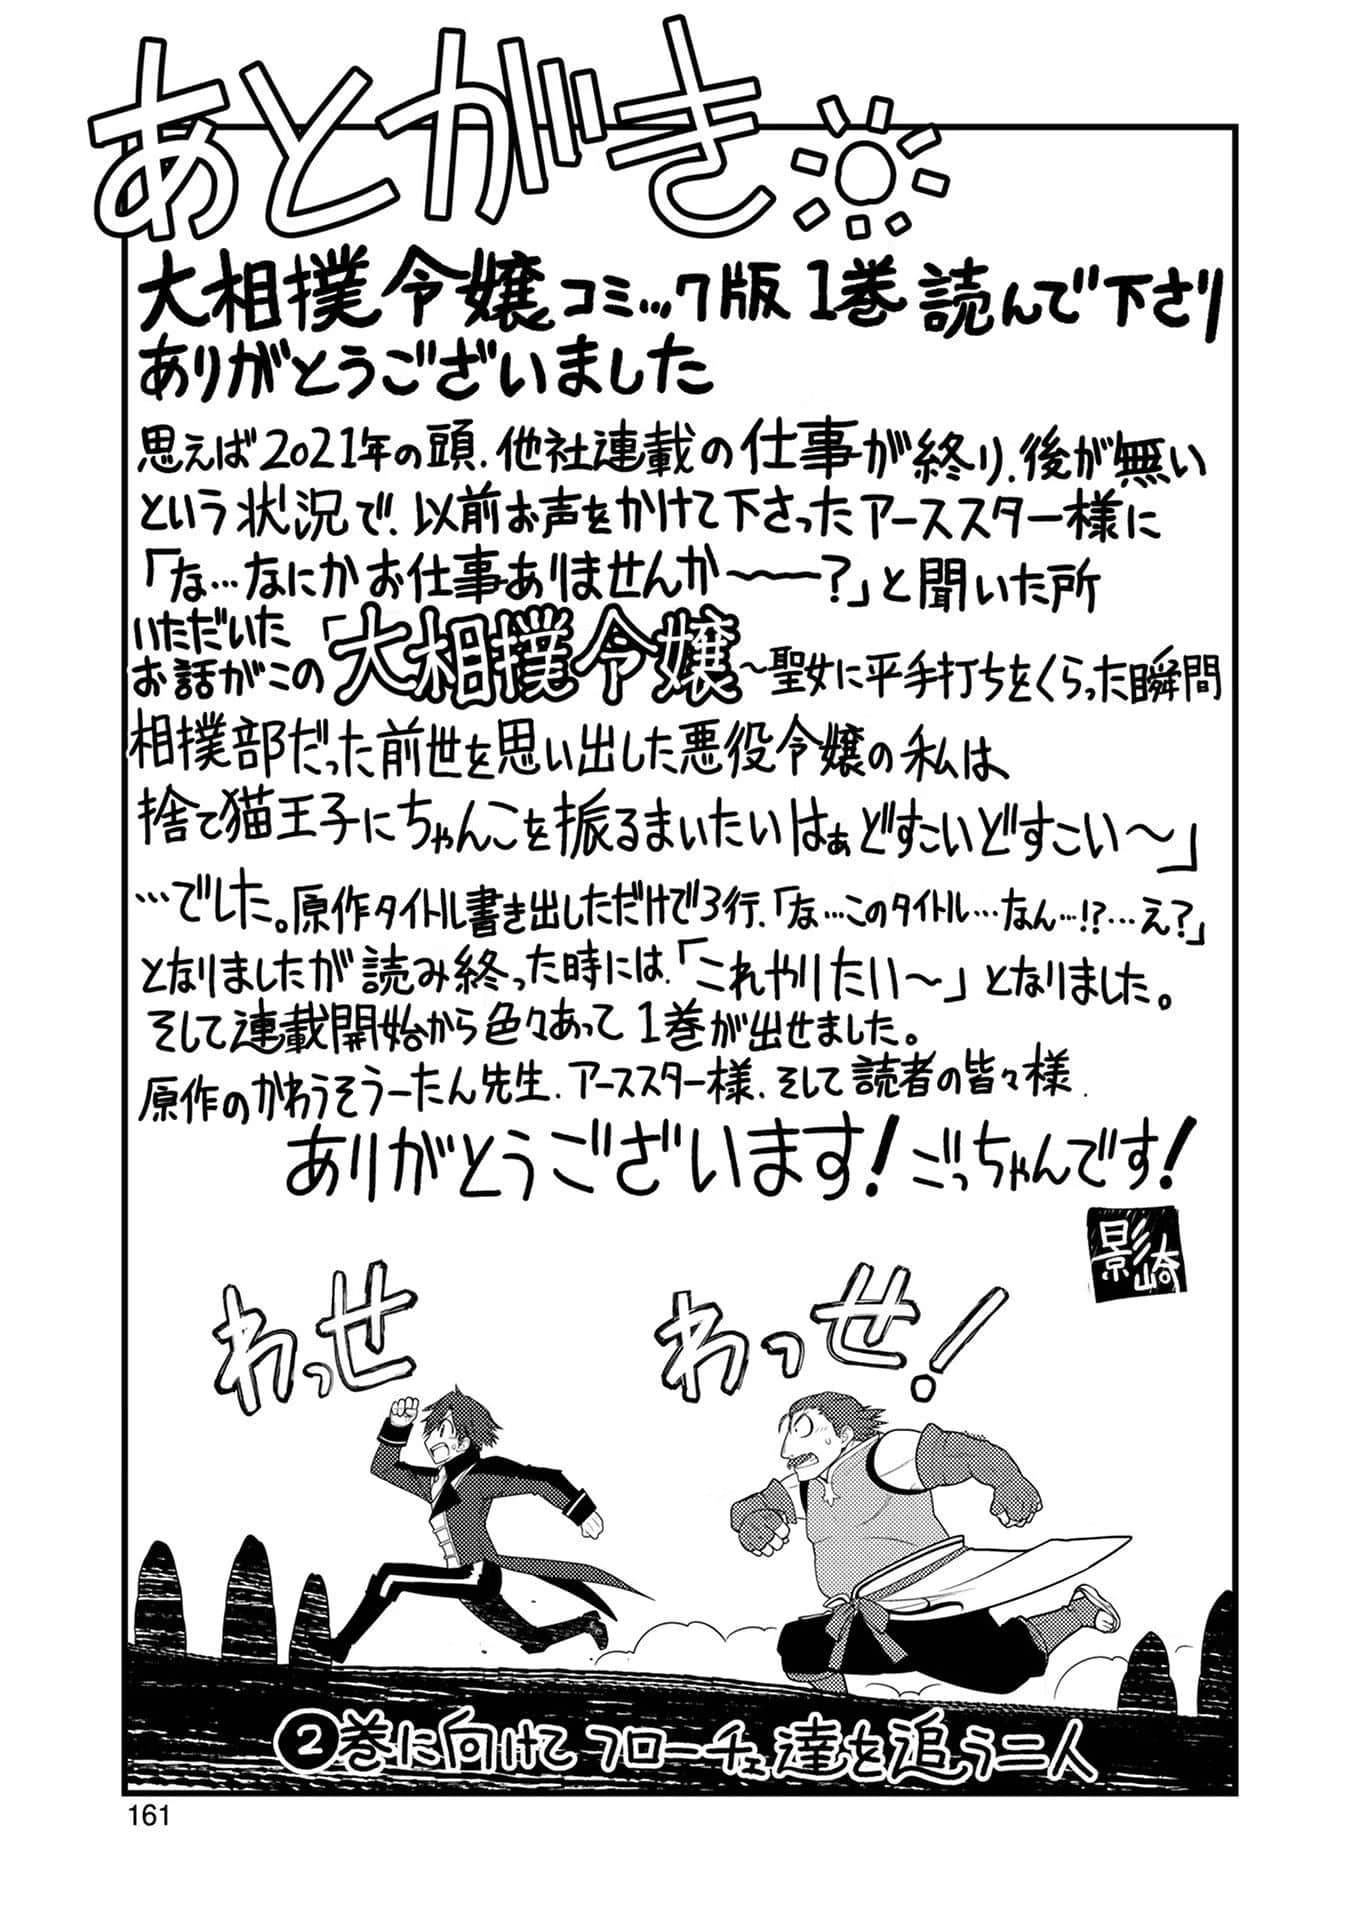 あとがき
大相撲令嬢コミック版1巻読んで下さり
ありがとうございました
思えば2021年の頭、他社連載の仕事が終り、後が無い
という状況で、以前お声をかけて下さったアーススター様に
「な…なにかお仕事ありませんか〜〜?」と聞いた所
いただいた
お話がこの「大相撲令嬢〜聖女に平手打ちをくらった瞬間
相撲部だった前世を思い出した悪役令嬢の私は、
捨て猫王子にちゃんこを振るまいたいはぁどすこいどすこい〜」
…でした。原作タイトル書き出しただけで3行、「な…このタイトル…なん…!?…え?」
となりましたが読み終った時には、「これやりたい〜」となりました。
そして連載開始から色々あって1巻が出せました。
原作のかわうそうーたん先生、アーススター様、そして読者の皆々様、
ありがとうございます!ごっちゃんです!
影崎
わっせ
わっせ!
②巻に向けてフローチェ達を追う二人
161